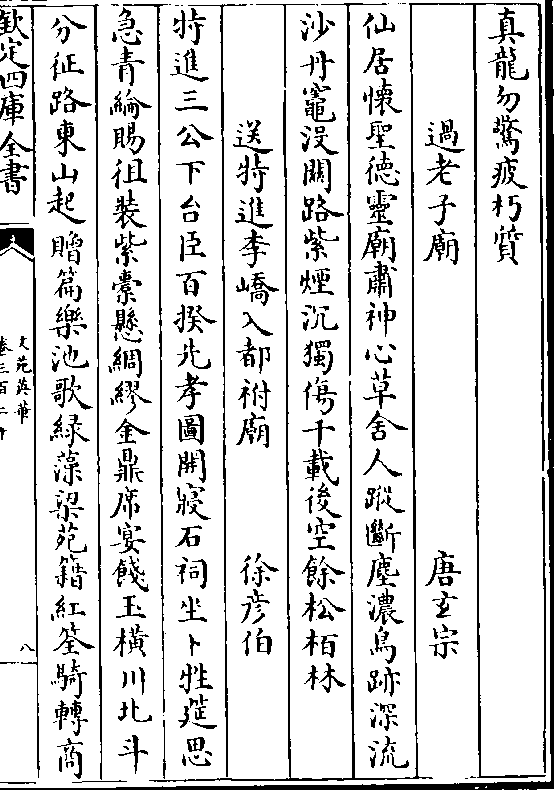 真龍勿驚疲朽質
過老子廟　唐玄宗
仙居懷聖德靈廟肅神心草舍人蹤斷塵濃鳥跡深流
沙丹竈没關路紫煙沉獨傷千載後空餘松栢林
送特進李嶠入都祔廟　徐彦伯
特進三公下台臣百揆先孝圖開寢石祠主卜牲筵恩
急青綸賜徂裝紫槖懸綢繆金鼎席宴餞玉橫川北斗
分征路東山起贈篇樂池歌緑藻梁苑籍紅筌騎轉商
欽定四庫全書
文苑英華
卷三百二十
八